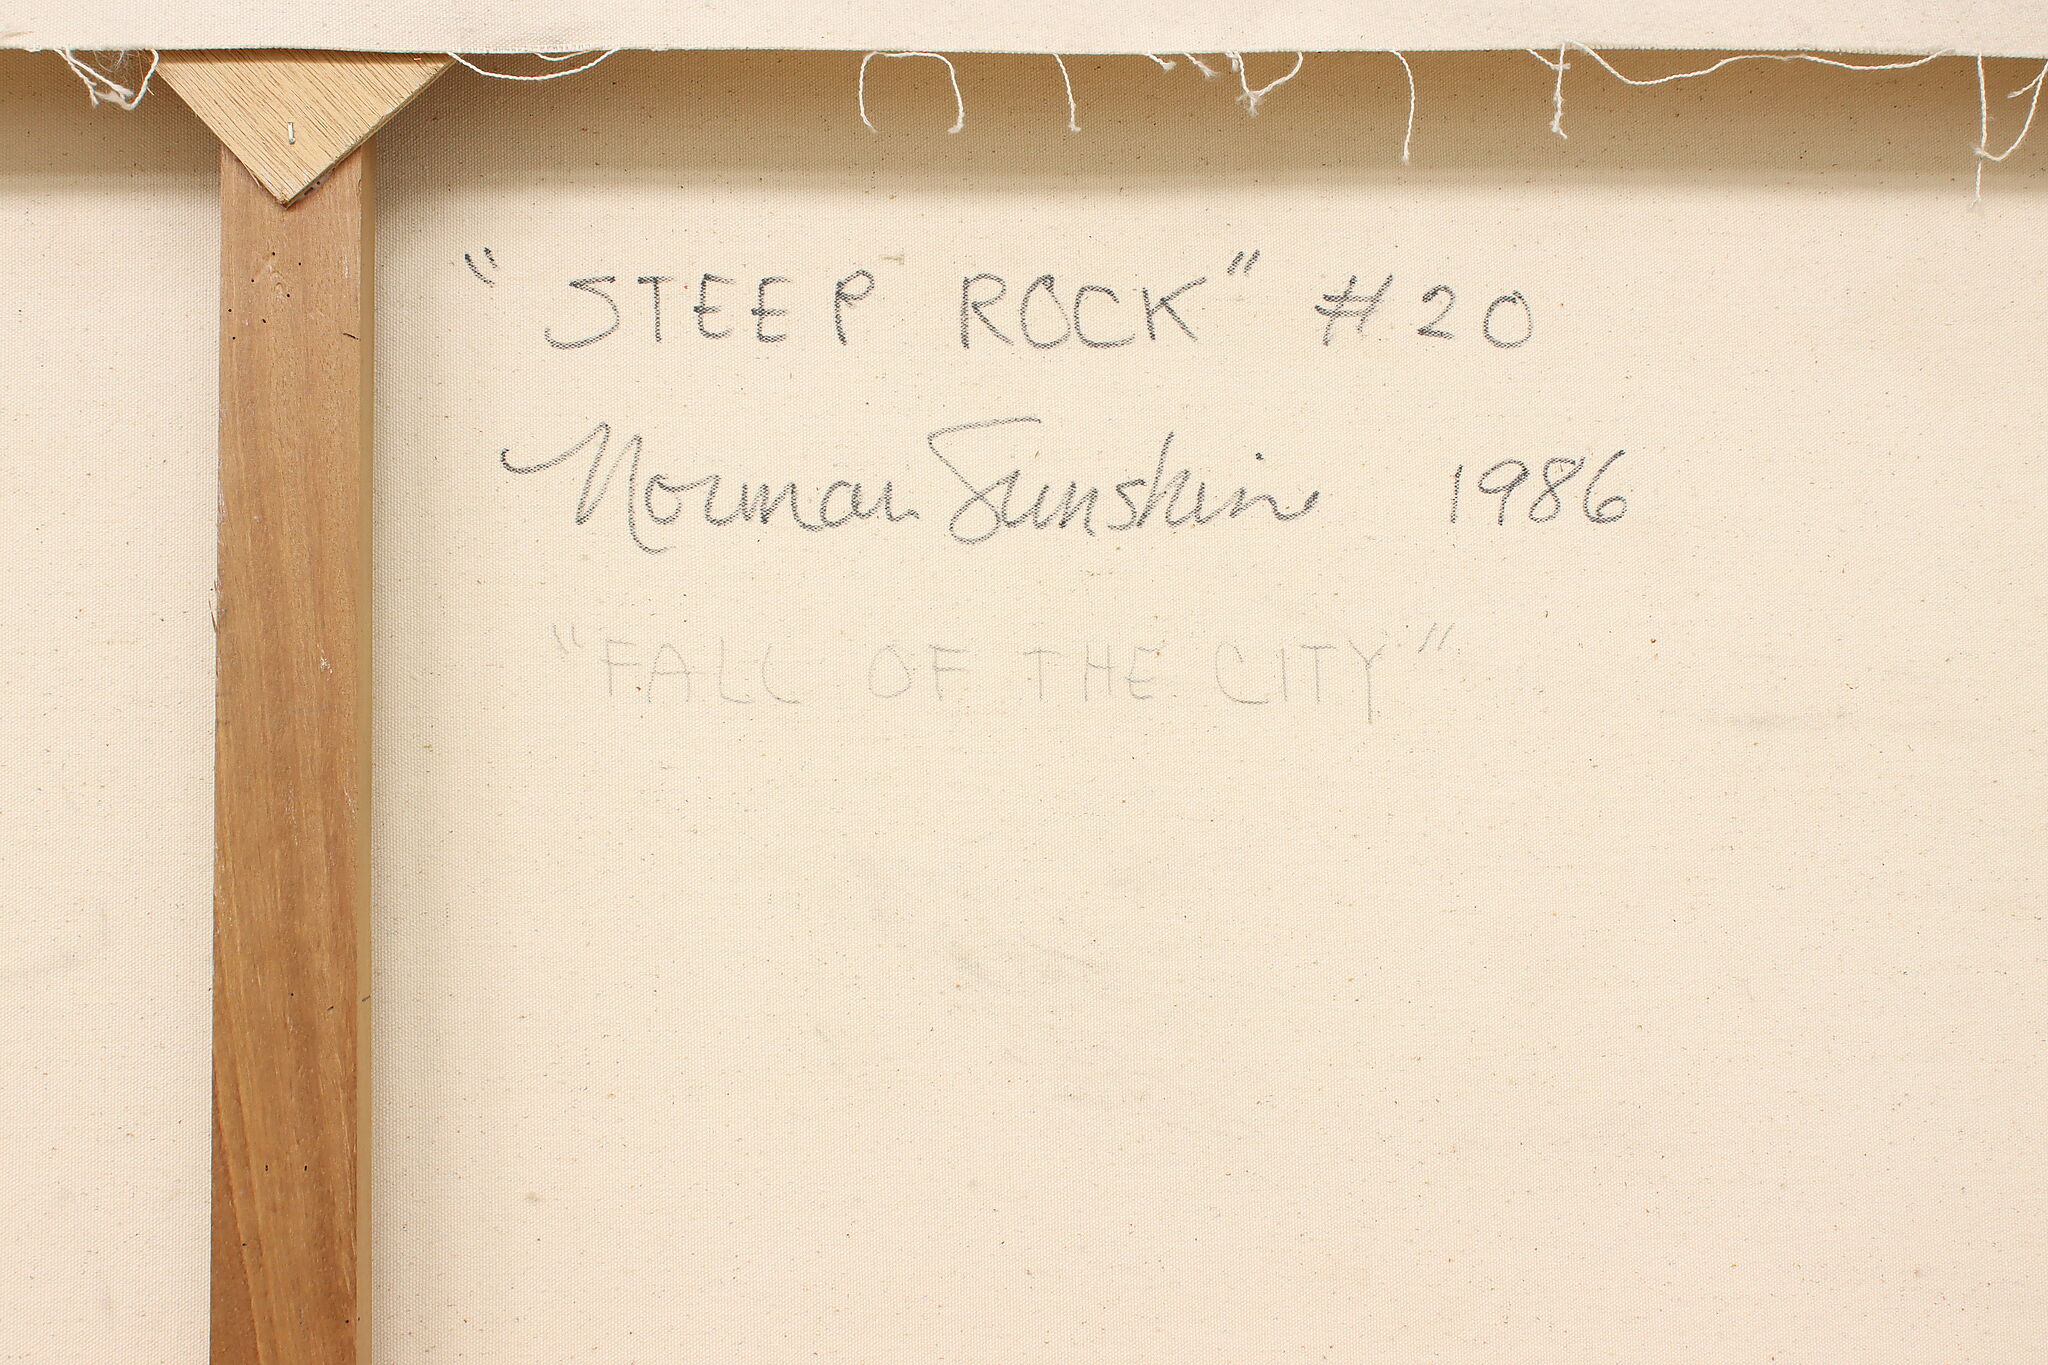 "STEEP ROCK" #20
Norman Sunshine 1986
"FALL OF THE CITY"